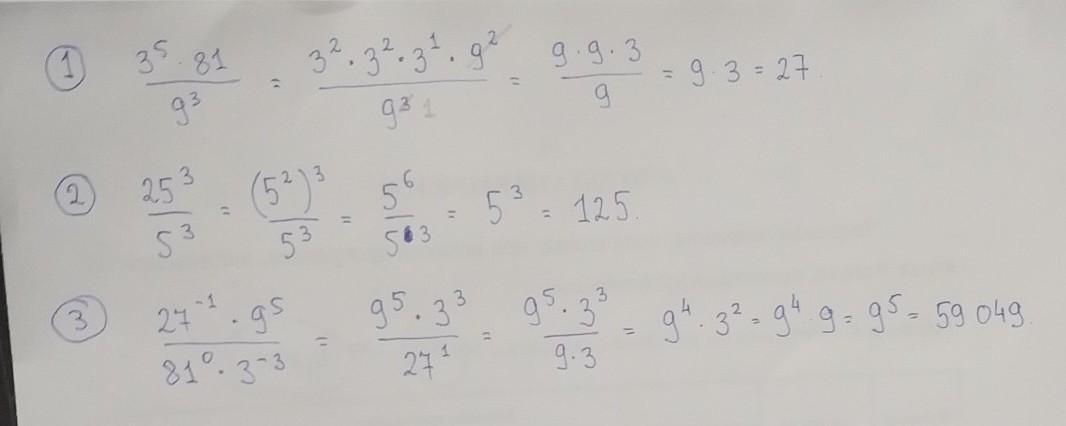 ① 3⁵ · 81 / 9³ = 3² · 3² · 3¹ · 9² / 9³ 1 = 9 · 9 · 3 / 9 = 9 · 3 = 27.
② 25³ / 5³ = (5²)³ / 5³ = 5⁶ / 5³ = 5³ = 125.
③ 27⁻¹ · 9⁵ / 81⁰ · 3⁻³ = 9⁵ · 3³ / 27¹ = 9⁵ · 3³ / 9·3 = 9⁴ · 3² = 9⁴ · 9 = 9⁵ = 59 049.